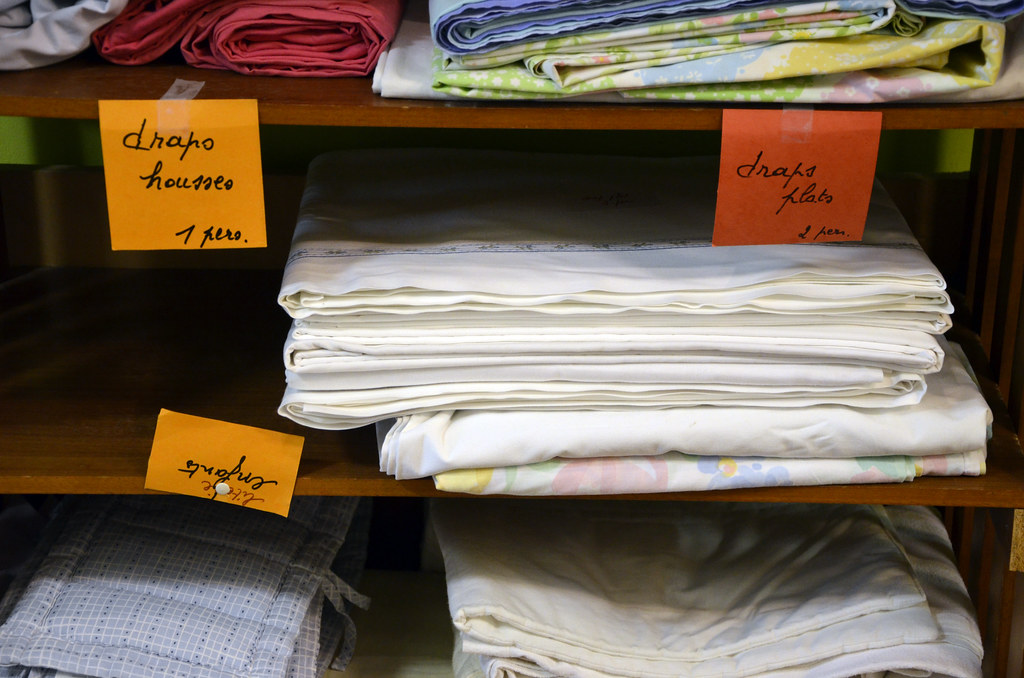 draps
housses
1 pers.
draps
plats
2 pers.
literie
enfants